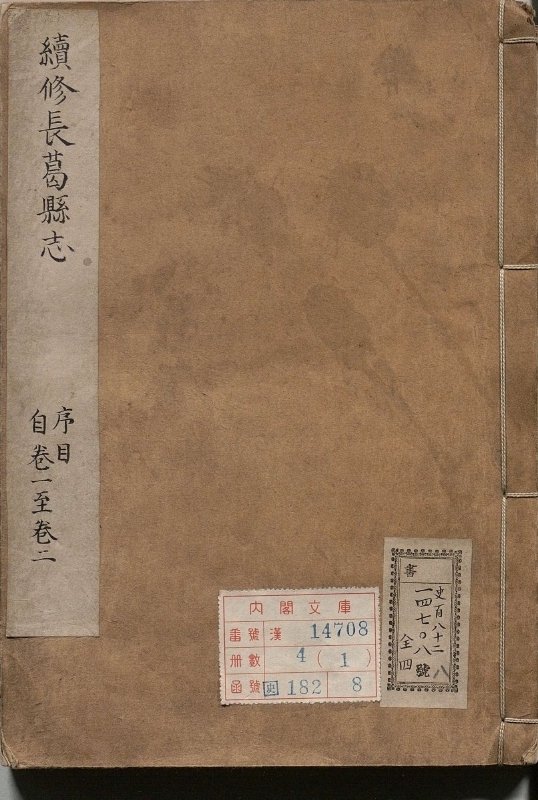 續修長葛縣志
序目
自卷一至卷二
內閣文庫
番號 漢 14708
冊數 4 (1)
函號 史 182 8
書
史百八十二 八
一四七〇八號
全四